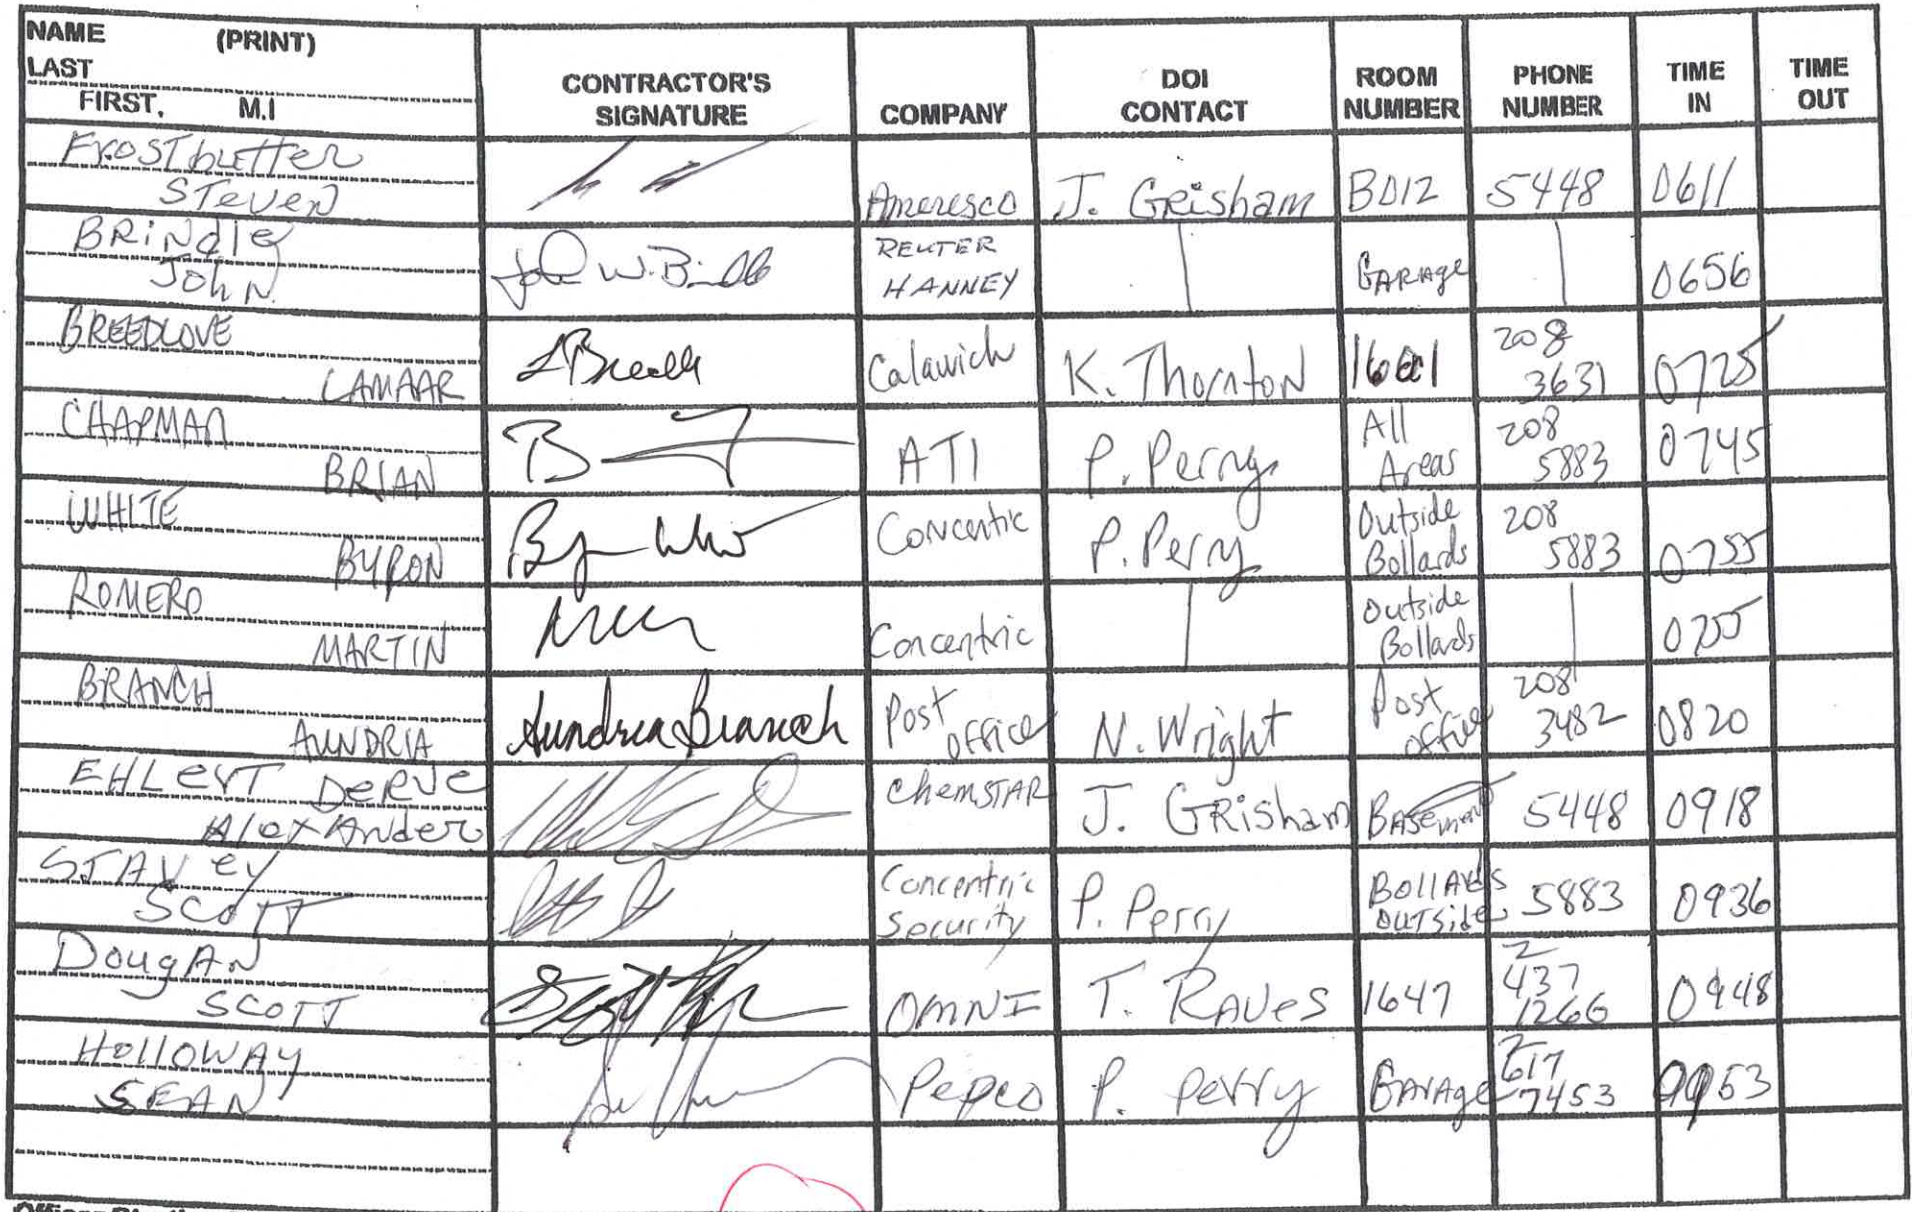 NAME (PRINT)
LAST
FIRST, M.I
CONTRACTOR'S
SIGNATURE
COMPANY
DOI
CONTACT
ROOM
NUMBER
PHONE
NUMBER
TIME
IN
TIME
OUT
Frostbutter
Steven
Ameresco
J. Grisham
B012
5448
0611
BRiNdle
JohN
John W.
REUTER
HANNEY
GARAge
0656
BREEDLOVE
LAMAAR
Calawich
K. Thornton
208
3631
0725
CHAPMAN
BRIAN
ATI
P. Perry
All
Areas
208
5883
0745
WHITE
BYRON
Concentric
P. Perry
Outside
Bollards
208
5883
0755
ROMERO
MARTIN
Concentric
Outside
Bollards
0755
BRANCH
AUNDRIA
Aundrea Branch
Post
office
N. Wright
Post
office
208
3482
0820
EHLerT Derve
AlexAnder
ChemSTAR
J. GRisham
BASement
5448
0918
STAVey
SCOTT
Concentric
Security
P. Perry
BollArds
OUTSide
5883
0936
DougAN
SCOTT
OMNI
T. RAVes
1647
2
437
1266
0948
HOllOWAy
SEAN
Pepco
P. Perry
GArAge
2
617
7453
0953